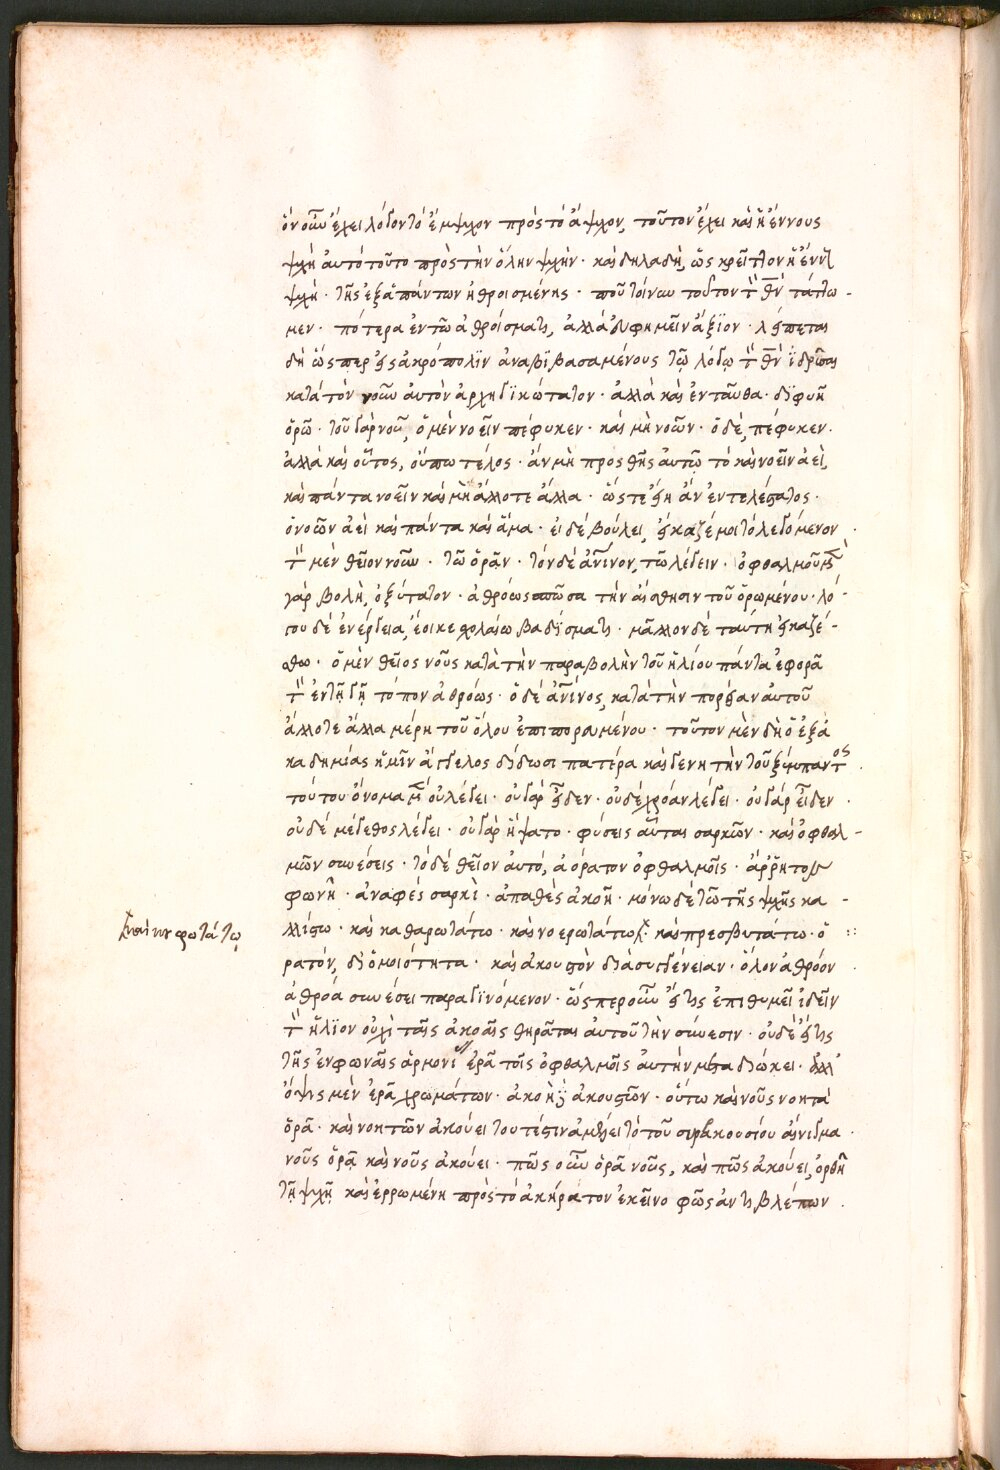 ὃν οὖν ἔχει λόγον τὸ ἔμψυχον πρὸς τὸ ἄψυχον, τοῦτον ἔχει καὶ ἡ ἔννους
ψχὴ αὐτὸ τοῦτο πρὸς τὴν ὅλην ψχήν · καὶ δηλαδὴ, ὡς κρεῖττον ἡ ἔννους
ψχὴ · τῆς ἐξ ἁπάντων ἠθροισμένης · ποῦ τοίνυν τοῦτον τὸν θν τάττω-
μεν · πότερα ἐν τῷ ἀθροίσματι, ἀλλὰ εὐφημεῖν ἄξιον · λείπεται
δὴ ὥσπερ εἰς ἀκρόπολιν ἀναβιβασαμένους τῷ λόγῳ τὸν θν ἱδρῦσαι
κατὰ τὸν νοῦν αὐτὸν ἀρχηγικώτατον · ἀλλὰ καὶ ἐνταῦθα · διφυῆ
ὁρῶ · τοῦ γὰρ νοῦ, ὁ μὲν νοεῖν πέφυκεν · καὶ μὴ νοῶν · ὁ δὲ, πέφυκεν ·
ἀλλὰ καὶ οὗτος, οὔπω τέλος · ἂν μὴ προσθῇς αὐτῷ τὸ καὶ νοεῖν ἀεὶ,
καὶ πάντα νοεῖν καὶ μὴ ἄλλοτε ἄλλα · ὥστε εἴη ἂν ἐντελέστατος ·
ὁ νοῶν ἀεὶ καὶ πάντα καὶ ἅμα · εἰ δὲ βούλει, εἴκαζέ μοι τὸ λεγόμενον
τὸν μὲν θεῖον νοῦν · τῷ ὁρᾶν · τὸν δὲ ἀνινον, τῷ λέγειν · ὀφθαλμοῦ μὲν
γὰρ βολὴ, ὀξύτατον · ἀθρόως σπῶσα τὴν αἴσθησιν τοῦ ὁρωμένου · λό-
γου δὲ ἐνέργεια, ἔοικε σχολαίῳ βαδίσματι · μᾶλλον δὲ ταύτῃ εἰκαζέ-
σθω · ὁ μὲν θεῖος νοῦς κατὰ τὴν παραβολὴν τοῦ ἡλίου πάντα ἐφορᾷ
τὸν ἐν τῇ γῇ τόπον ἀθρόως · ὁ δὲ ἀνινος, κατὰ τὴν πορείαν αὐτοῦ
ἄλλοτε ἄλλα μέρη τοῦ ὅλου ἐπιπορευομένου · τοῦτον μὲν δὴ ὁ ἐξ ἀ
καδημίας ἡμῖν ἄγγελος δίδωσι πατέρα καὶ γεννητὴν τοῦ ξύμπαντος
τούτου ὄνομα μὲν οὐ λέγει · οὐ γὰρ εἶδεν · οὐδὲ χρόαν λέγει · οὐ γὰρ εἶδεν
οὐδὲ μέγεθος λέγει · οὐ γὰρ ἥψατο · φύσεις αὗται σαρκῶν · καὶ ὀφθαλ-
μῶν συνέσεις · τὸ δὲ θεῖον αὐτὸ, ἀόρατον ὀφθαλμοῖς · ἄρρητον
φωνῇ · ἀναφὲς σαρκὶ · ἀπαθὲς ἀκοῇ · μόνῳ δὲ τῷ τῆς ψχῆς κα-
λλίστῳ · καὶ καθαρωτάτῳ · καὶ νοερωτάτῳ · καὶ πρεσβυτάτῳ · ὁ
καὶ κουφοτάτῳ
ρατόν, δι ὁμοιότητα · καὶ ἀκουστὸν διὰ συγγένειαν · ὅλον ἀθρόον
ἀθρόᾳ συνέσει παραγινόμενον · ὥσπερ οὖν εἴ τις ἐπιθυμεῖ ἰδεῖν
τὸν ἥλιον οὐχὶ ταῖς ἀκοαῖς θηρᾶται αὐτοῦ τὴν σύνεσιν · οὐδὲ εἴ τις
τῆς ἐν φωναῖς ἁρμονίας ἐρᾷ τοῖς ὀφθαλμοῖς αὐτὴν μεταδιώκει · ἀλλ'
ὄψις μὲν ἐρᾷ χρωμάτων · ἀκοὴ ἀκουστῶν · οὕτω καὶ νοῦς νοητὰ
ὁρᾷ · καὶ νοητῶν ἀκούει τουτέστιν ἀμέλει τὸ τοῦ συρακουσίου αἴνιγμα
νοῦς ὁρᾷ καὶ νοῦς ἀκούει · πῶς οὖν ὁρᾷ νοῦς, καὶ πῶς ἀκούει, ὀρθῇ
τῇ ψχῇ καὶ ἐρρωμένῃ πρὸς τὸ ἀκήρατον ἐκεῖνο φῶς ἀντιβλέπων ·